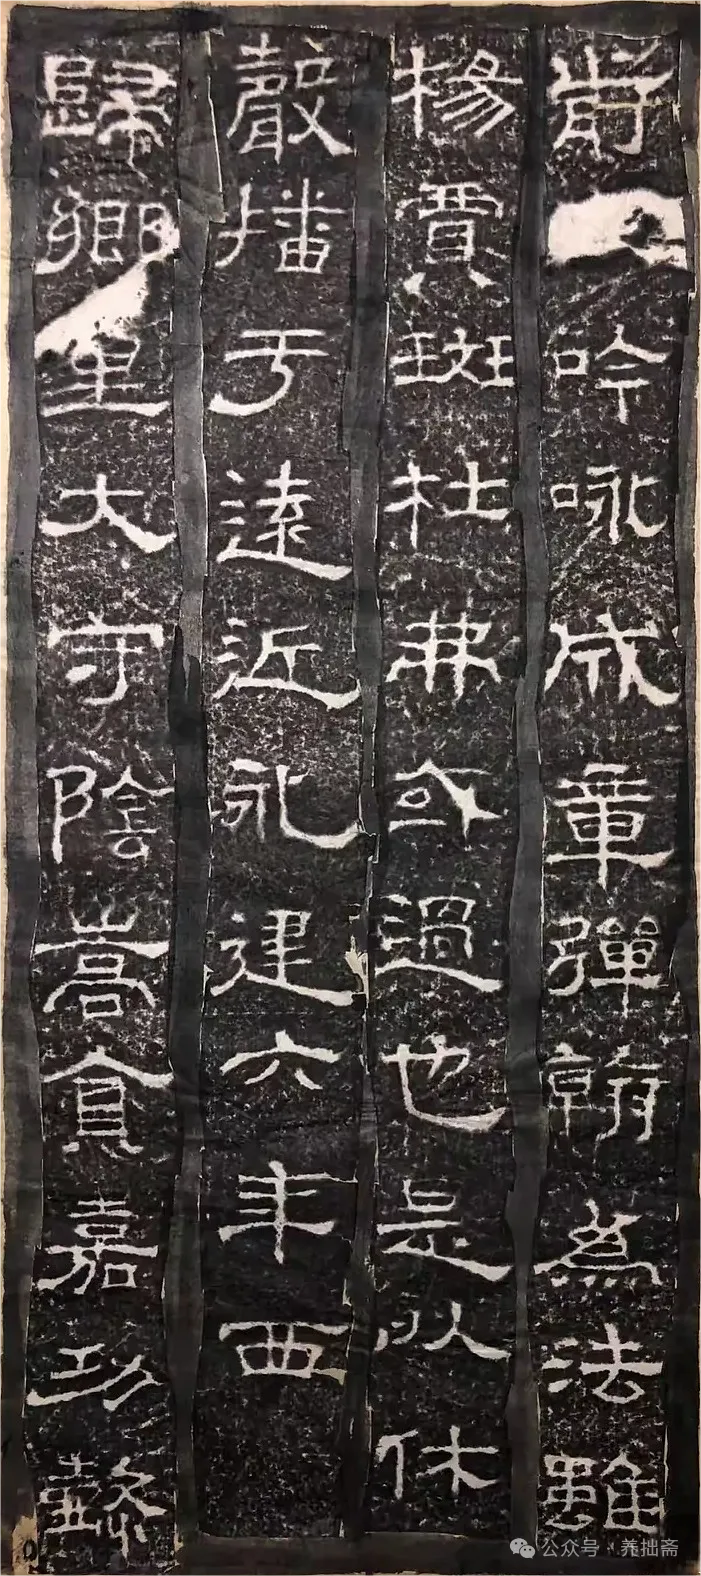 吟咏成章彈翰為法雖
楊賈斑杜弗或過也是以休
聲播于遠近永建六年西
歸鄉里大守陰嵩貪嘉功懿
公众号·养拙斋